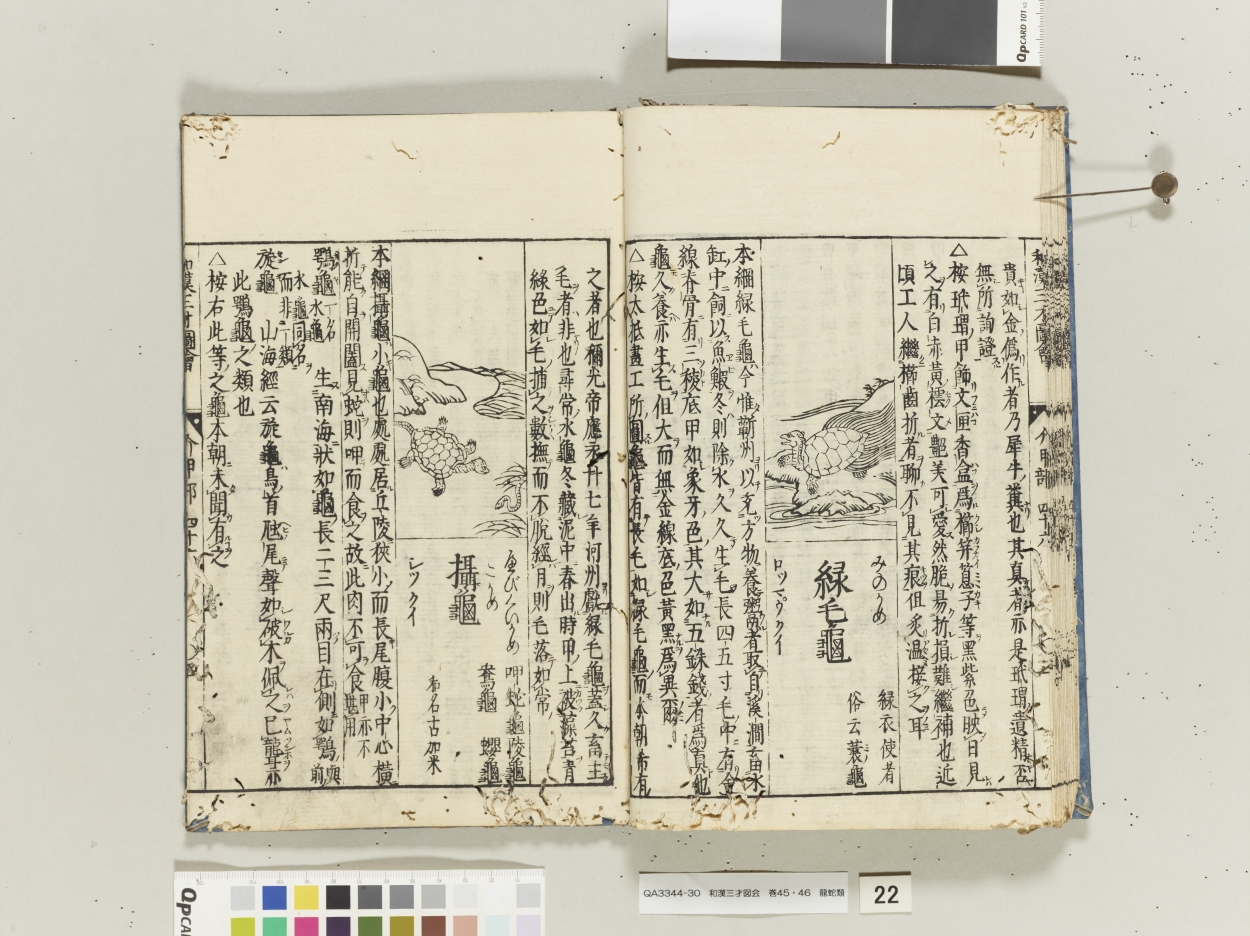 貴如金偽作者乃犀牛糞也其真者亦是玳瑁遺精
無所詢證
△桉玳瑁甲飾文匣香盒爲櫛筓䈎子等黑紫色映日見
之有白赤黃檽文艶美可愛然脆昜折損難繼補也近
頃工人繼櫛齒折者聊不見其痕但炙温接之耳
みのかめ
緑毛龜
ロッマウクイ
緑衣使者
俗云蓑龜
本綱緑毛龜今惟蘄州以充方物養鬻者取自溪澗畜水
缸中飼以魚鰕冬則除水久久生毛長四五寸毛中有金
線脊骨有三稜底甲如象牙色其大如五銖錢者爲真他
龜久養亦生毛但大而無金線底色黃黑爲異爾
△桉太抵畫工所圖龜皆有長毛如緑毛龜而本朝希有
之者也稱光帝應永廾七年河州獻緑毛龜蓋久畜土
毛者非也尋常水龜冬藏泥中春出時甲上被藻苔青
緑色如毛捕之數撫而不脫經月則毛落如常
攝龜
レツクイ
呷蛇龜 陵龜
鴦龜 蠳龜
和名古加米
本綱攝龜小龜也處處居丘陵狹小而長尾腹小中心橫
折能自開闔見蛇則呷而食之故此肉不可食甲亦不堪用
鶚龜 一名水龜 水龜同名而非一類 生南海狀如龜長二三尺兩目在側如鶚
旋龜 山海經云旋龜鳥首虺尾聲如破木佩之已聾亦
此鶚龜之類也
△桉右此等之龜本朝未聞有之
介甲部 四十六
QpCARD 101
QA3344-30 和漢三才図会 巻45・46 龍蛇類
22